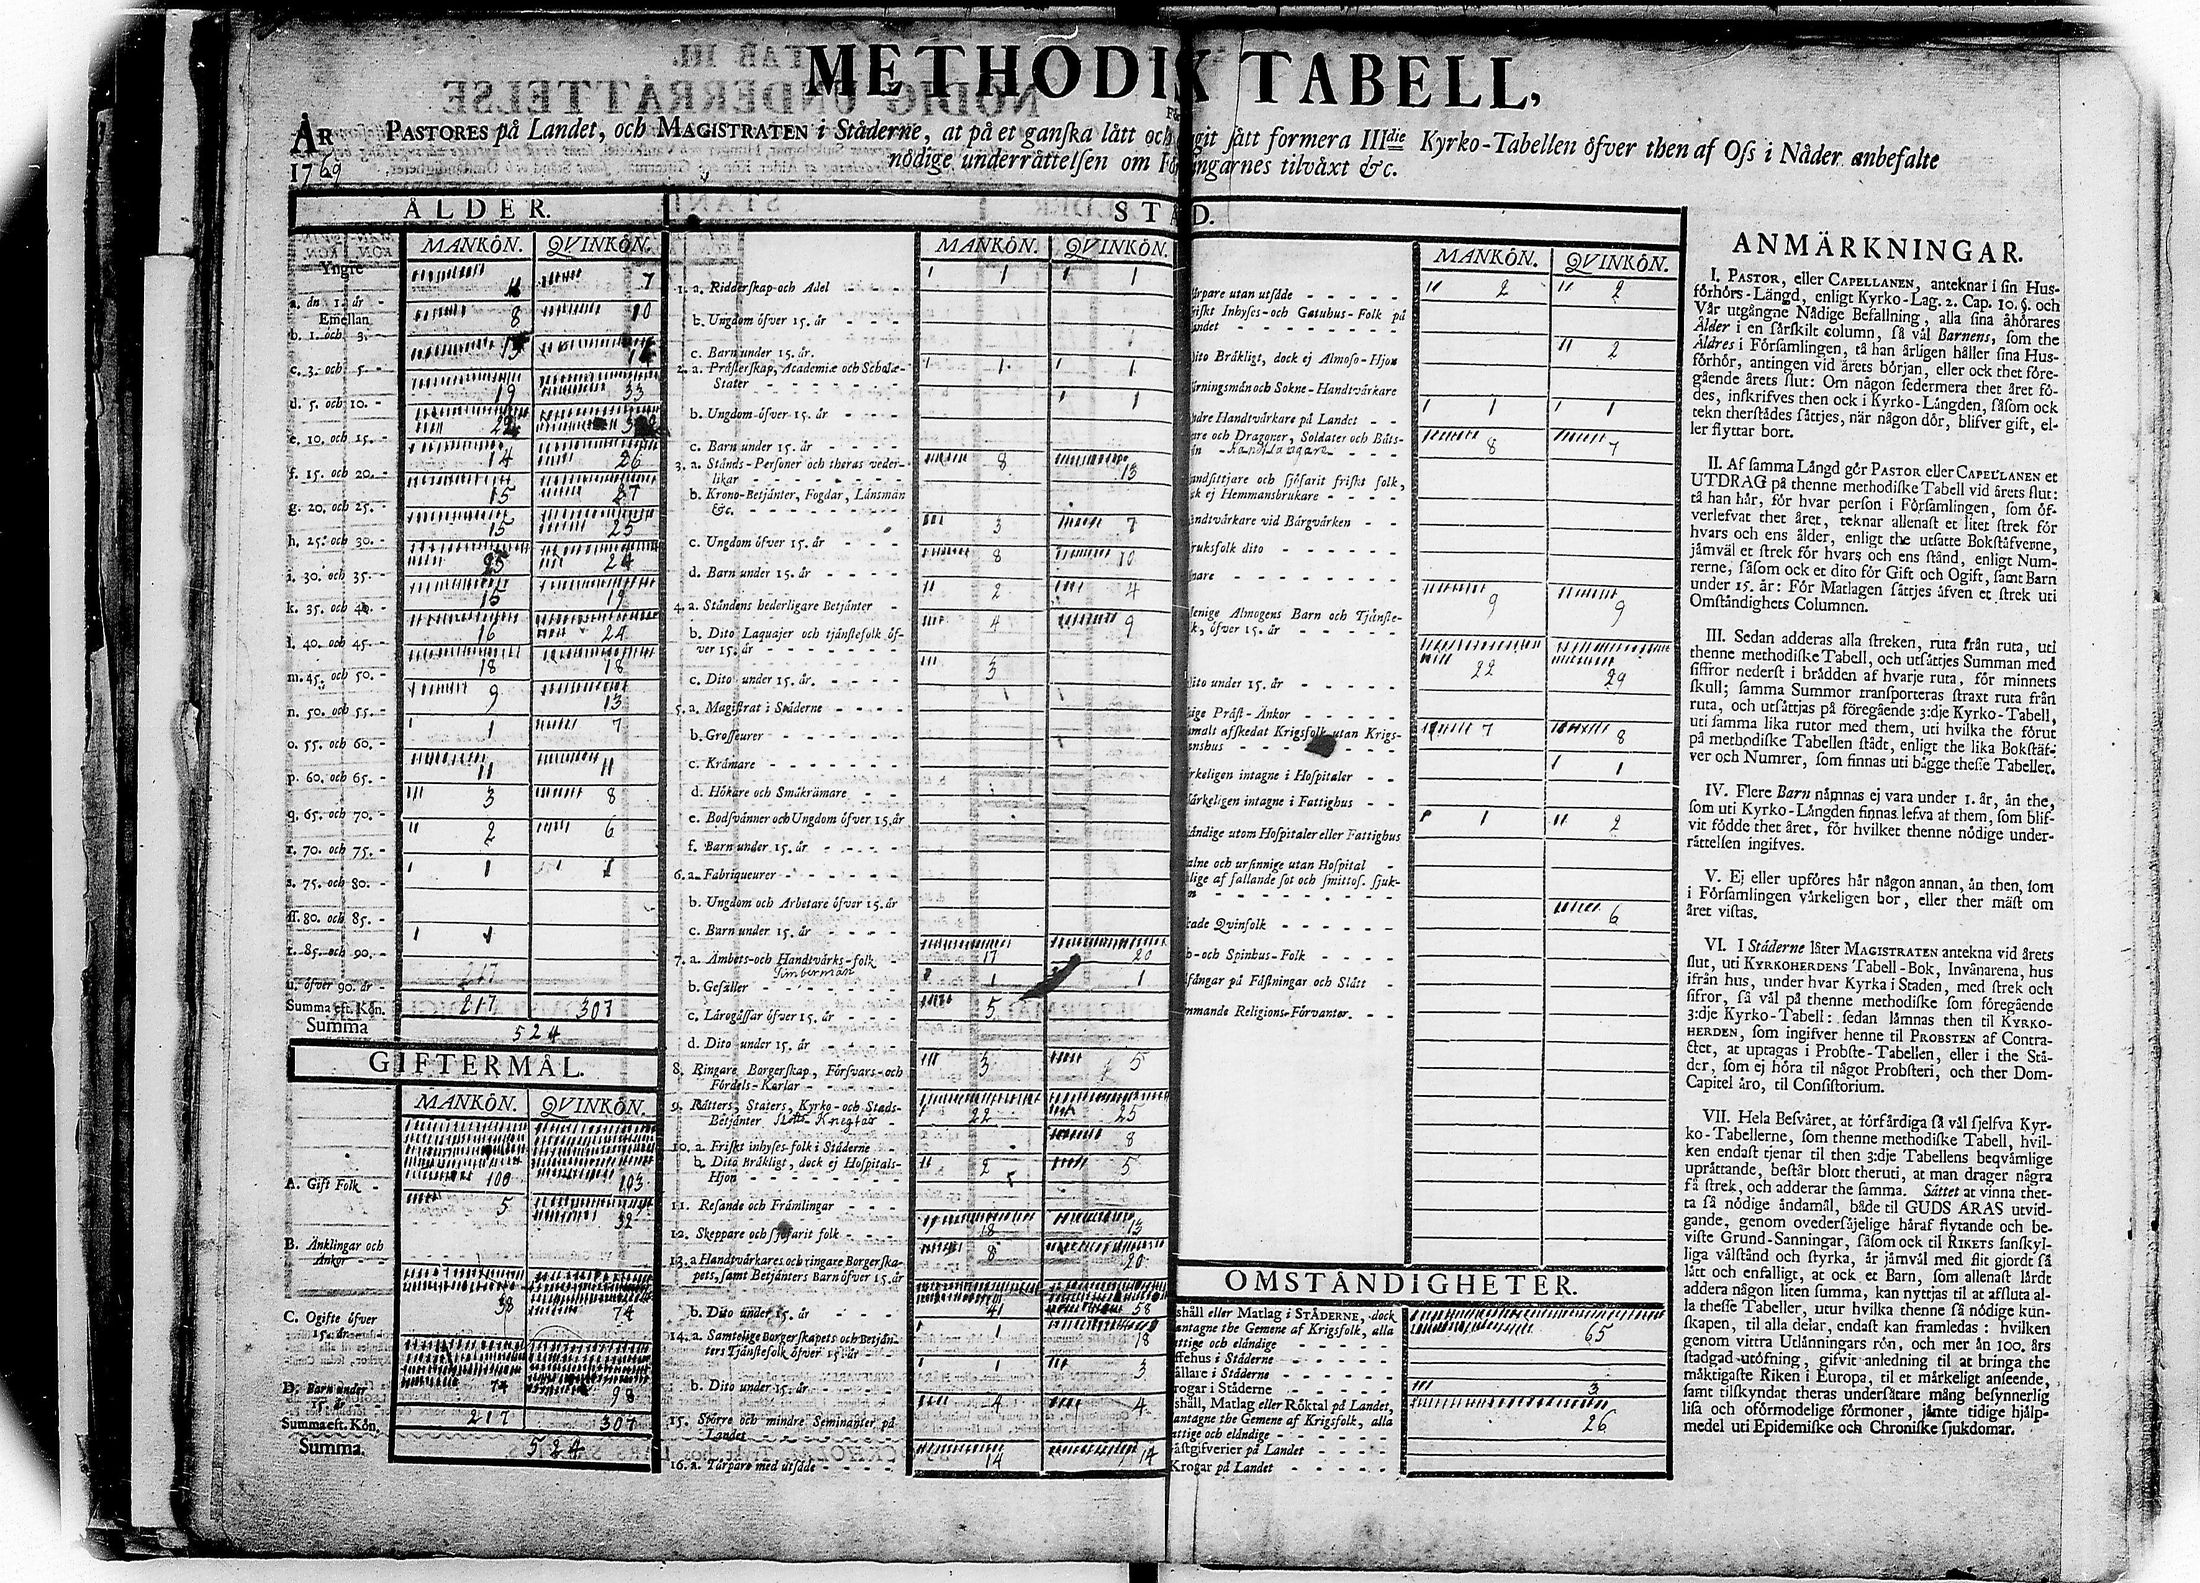 METHODIK TABELL,
ÅR PASTORES på Landet, och MAGISTRATEN i Städerne, at på et ganska lätt och git sätt formera IIIdie Kyrko-Tabellen öfver then af Oss i Nåder anbefalte
1769 nödige underrättelsen om För ingarnes tilväxt &c.
ÅLDER.
MANKÖN. QVINKÖN.
Yngre
a. än 1. år 11 7
Emellan
b. 1. och 3. 8 10
c. 3. och 5.
d. 5. och 10. 19 33
e. 10. och 15.
f. 15. och 20. 14 26
g. 20. och 25. 15 27
h. 25. och 30. 15 25
i. 30. och 35. 25 24
k. 35. och 40. 15 19
l. 40. och 45. 16 24
m. 45. och 50. 18 18
n. 50. och 55. 9 13
o. 55. och 60. 1 7
p. 60. och 65. 11 11
q. 65. och 70. 3 8
r. 70. och 75. 2 6
s. 75. och 80. 1 1
ſſ. 80. och 85.
t. 85. och 90. 1
u. öfver 90. år 217
Summa eft. Kön. 217 307
Summa 524
GIFTERMÅL.
MANKÖN. QVINKÖN.
A. Gift Folk 100 103
B. Änklingar och
Änkor 5 32
C. Ogifte öfver
15. år 38 74
D. Barn under
15. år 74 98
Summa eft. Kön. 217 307
Summa. 524
STÅD.
MANKÖN. QVINKÖN.
1. a. Ridderskap och Adel 1 1
b. Ungdom öfver 15. år
c. Barn under 15. år.
2. a. Prästerskap, Academiæ och Scholæ-
Stater 1 1
b. Ungdom öfver 15. år 1
c. Barn under 15. år
3. a. Stånds-Personer och theras veder-
likar 8 13
b. Krono-Betjänter, Fogdar, Länsmän
&c.
c. Ungdom öfver 15. år 3 7
d. Barn under 15. år 8 10
4. a. Ståndens hederligare Betjänter 2 4
b. Dito Laquajer och tjänstefolk öf-
ver 15. år 4 9
c. Dito under 15. år. 3
5. a. Magistrat i Städerne
b. Grosseurer
c. Krämare
d. Hökare och Småkrämare
e. Bodsvänner och Ungdom öfver 15. år
f. Barn under 15. år
6. a. Fabriqueurer
b. Ungdom och Arbetare öfver 15. år
c. Barn under 15. år
7. a. Ämbets-och Handtvärks-folk 17 20
Timberman
b. Gesäller 1 1
c. Lärogåssar öfver 15. år 5
d. Dito under 15. år
8. Ringare Borgerskap, Försvars-och
Fördels-Karlar 3 5
9. Rätters, Staters, Kyrko-och Stads-
Betjänter 22 25
10. a. Friskt inhyses-folk i Städerne 8
b. Dito Bräkligt, dock ej Hospitals-
Hjon 2 5
11. Resande och Främlingar
12. Skeppare och sjöfarit folk 18 13
13. a. Handtvärkares och ringare Borgerska-
pets, samt Betjänters Barn öfver 15. år 8 20
b. Dito under 15. år 41 58
14. a. Samtelige Borgerskapets och Betjän-
ters Tjänstefolk öfver 15 år 1 18
b. Dito under 15. år 1 3
15. Större och mindre Seminanter på
Landet 4 4
16. a. Torpare med utsäde 14 14
MANKÖN. QVINKÖN.
årpare utan utsäde 2 2
riskt Inhyses-och Gatuhus-Folk på
andet
Dito Bräkligt, dock ej Almoso-Hjon 2
ärningsmän och Sokne-Handtvärkare
ndre Handtvärkare på Landet 1 1
are och Dragoner, Soldater och Båts-
än 8 7
andsittjare och sjöfarit friskt folk,
ck ej Hemmansbrukare
andtvärkare vid Bärgvärken
ruksfolk dito
nare
Menige Almogens Barn och Tjänste-
k, öfver 15. år 9 9
Dito under 15. år 22 29
tige Präst-Änkor
amalt afskedat Krigsfolk utan Krigs-
anshus 7 8
rkeligen intagne i Hospitaler 1
ärkeligen intagne i Fattighus
ländige utom Hospitaler eller Fattighus 1 2
alne och ursinnige utan Hospital
slige af fallande sot och smittos. sjuk-
n
kade Qvinfolk 6
p-och Spinhus-Folk
sfångar på Fästningar och Slått
mmande Religions-Förvanter.
OMSTÄNDIGHETER.
shåll eller Matlag i STÄDERNE, dock
antagne the Gemene af Krigsfolk, alla 65
attige och eländige
ffehus i Städerne
ällare i Städerne
rogar i Städerne 3
shåll, Matlag eller Röktal på Landet,
antagne the Gemene af Krigsfolk, alla 26
attige och eländige
ästgifverier på Landet
Krogar på Landet
ANMÄRKNINGAR.
I. PASTOR, eller CAPELLANEN, anteknar i sin Hus-
förhörs-Längd, enligt Kyrko-Lag. 2. Cap. 10. §. och
Vår utgångne Nådige Befallning, alla sina åhörares
Ålder i en särskilt column, så väl Barnens, som the
Äldres i Församlingen, tå han årligen håller sina Hus-
förhör, antingen vid årets början, eller ock thet före-
gående årets slut: Om någon sedermera thet året fö-
des, inskrifves then ock i Kyrko-Längden, såsom ock
tekn therstädes sättjes, när någon dör, blifver gift, el-
ler flyttar bort.
II. Af samma Längd gör PASTOR eller CAPELLANEN et
UTDRAG på thenne methodiske Tabell vid årets slut:
tå han här, för hvar person i Församlingen, som öf-
verlefvat thet året, teknar allenast et litet strek för
hvars och ens ålder, enligt the utsatte Bokstäfverne,
jämväl et strek för hvars och ens stånd, enligt Num-
rerne, såsom ock et dito för Gift och Ogift, samt Barn
under 15. år: För Matlagen sättjes äfven et strek uti
Omständighets Columnen.
III. Sedan adderas alla streken, ruta från ruta, uti
thenne methodiske Tabell, och utsättjes Summan med
siffror nederst i brädden af hvarje ruta, för minnets
skull; samma Summor transporteras straxt ruta från
ruta, och utsättjas på föregående 3:dje Kyrko-Tabell,
uti samma lika rutor med them, uti hvilka the förut
på methodiske Tabellen stådt, enligt the lika Bokstäf-
ver och Numrer, som finnas uti bägge thesse Tabeller.
IV. Flere Barn nämnas ej vara under 1. år, än the,
som uti Kyrko-Längden finnas lefva at them, som blif-
vit födde thet året, för hvilket thenne nödige under-
rättelsen ingifves.
V. Ej eller upföres här någon annan, än then, som
i Församlingen värkeligen bor, eller ther mäst om
året vistas.
VI. I Städerne låter MAGISTRATEN antekna vid årets
slut, uti KYRKOHERDENS Tabell-Bok, Invånarena, hus
ifrån hus, under hvar Kyrka i Staden, med strek och
sifror, så väl på thenne methodiske som föregående
3:dje Kyrko-Tabell: sedan lämnas then til KYRKO-
HERDEN, som ingifver henne til PROBSTEN af Contra-
ctet, at uptagas i Probste-Tabellen, eller i the Stä-
der, som ej höra til något Probsteri, och ther Dom-
Capitel äro, til Consistorium.
VII. Hela Besväret, at förfärdiga så väl sjelfva Kyr-
ko-Tabellerne, som thenne methodiske Tabell, hvil-
ken endast tjenar til then 3:dje Tabellens beqvämlige
uprättande, består blott theruti, at man drager några
få strek, och adderar the samma. Sättet at vinna thet-
ta så nödige ändamål, både til GUDS ÄRAS utvid-
gande, genom ovedersäjelige häraf flytande och be-
viste Grund-Sanningar, såsom ock til RIKETS sanskyl-
liga välstånd och styrka, är jämväl med flit gjordt så
lätt och enfalligt, at ock et Barn, som allenast lärdt
addera någon liten summa, kan nyttjas til at afsluta al-
la thesse Tabeller, utur hvilka thenne så nödige kun-
skapen, til alla delar, endast kan framledas: hvilken
genom vittra Utlänningars rön, och mer än 100. års
stadgad utöfning, gifvit anledning til at bringa the
mäktigaste Riken i Europa, til et märkeligt anseende,
samt tilskyndat theras undersåtare mång besynnerlig
lisa och oförmodelige förmoner, jämte tidige hjälp-
medel uti Epidemiske och Chroniske sjukdomar.